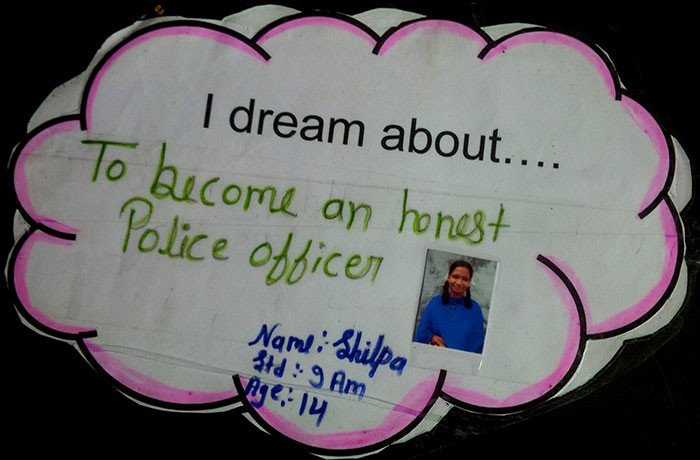 I dream about....
To become an honest
Police officer
Name:- Shilpa
Std :- 9 Am
Age:- 14